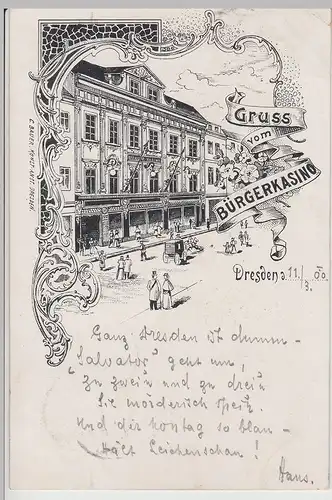 Gruss
vom
BÜRGERKASINO
C. BAUER, KUNST-ANST. DRESDEN.
Dresden d. 11./3. 00
Ganz Dresden ist dumm –
"Salvator" geht um,
Zu zwei'n und zu drei'n
Sie mörderisch
Und der Montag so blau –
Hält Leichenschau!
Hans.